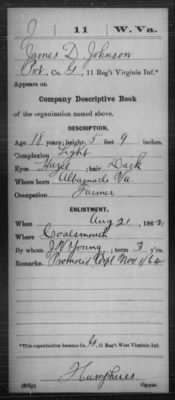 J 11 W. Va.
James D. Johnson
Pvt, Co. G, 11 Reg't Virginia Inf.*
Appears on
Company Descriptive Book
of the organization named above.
DESCRIPTION.
Age 18 years; height 5 feet 9 inches.
Complexion Light
Eyes Hazel; hair Dark
Where born Albemarle Va
Occupation Farmer
ENLISTMENT.
When Aug 21, 1862.
Where Coalsmouth
By whom J.W. Young; term 3 y'rs.
Remarks: Promoted Corpl Nov 1/64
*This organization became Co. G, 11 Reg't West Virginia Inf.
Humphries
Copyist.